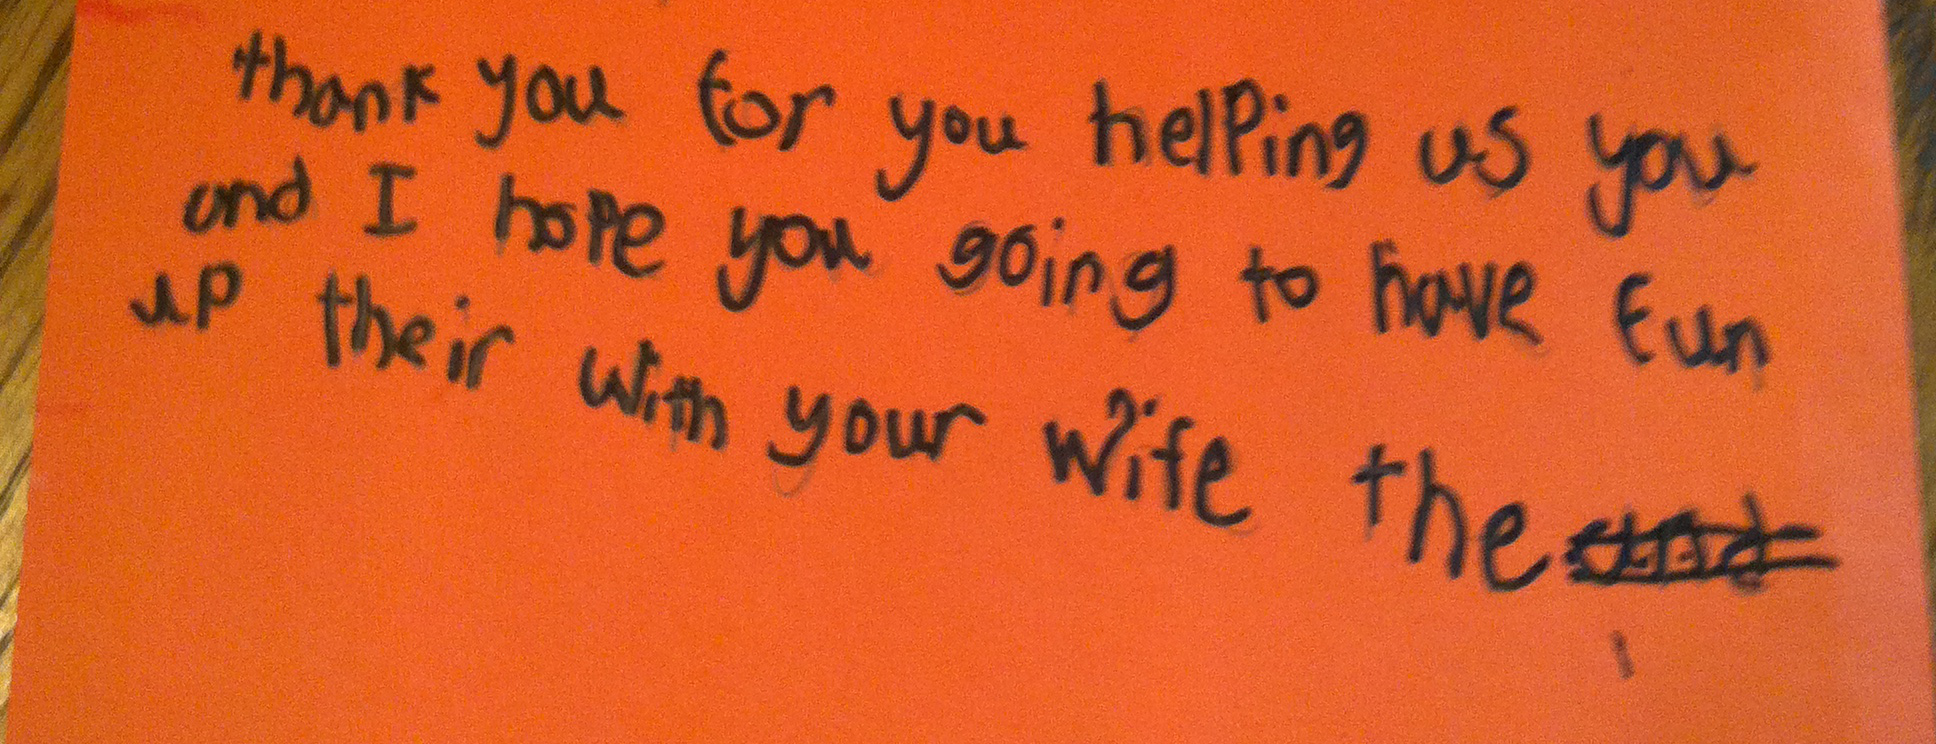 thank you for you helping us you
and I hope you going to have fun
up their with your wife the